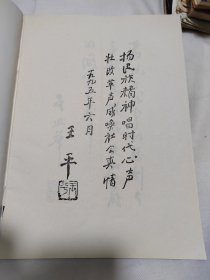 扬民族精神唱时代心声
壮改革声威唤社会真情
一九九五年六月
王平